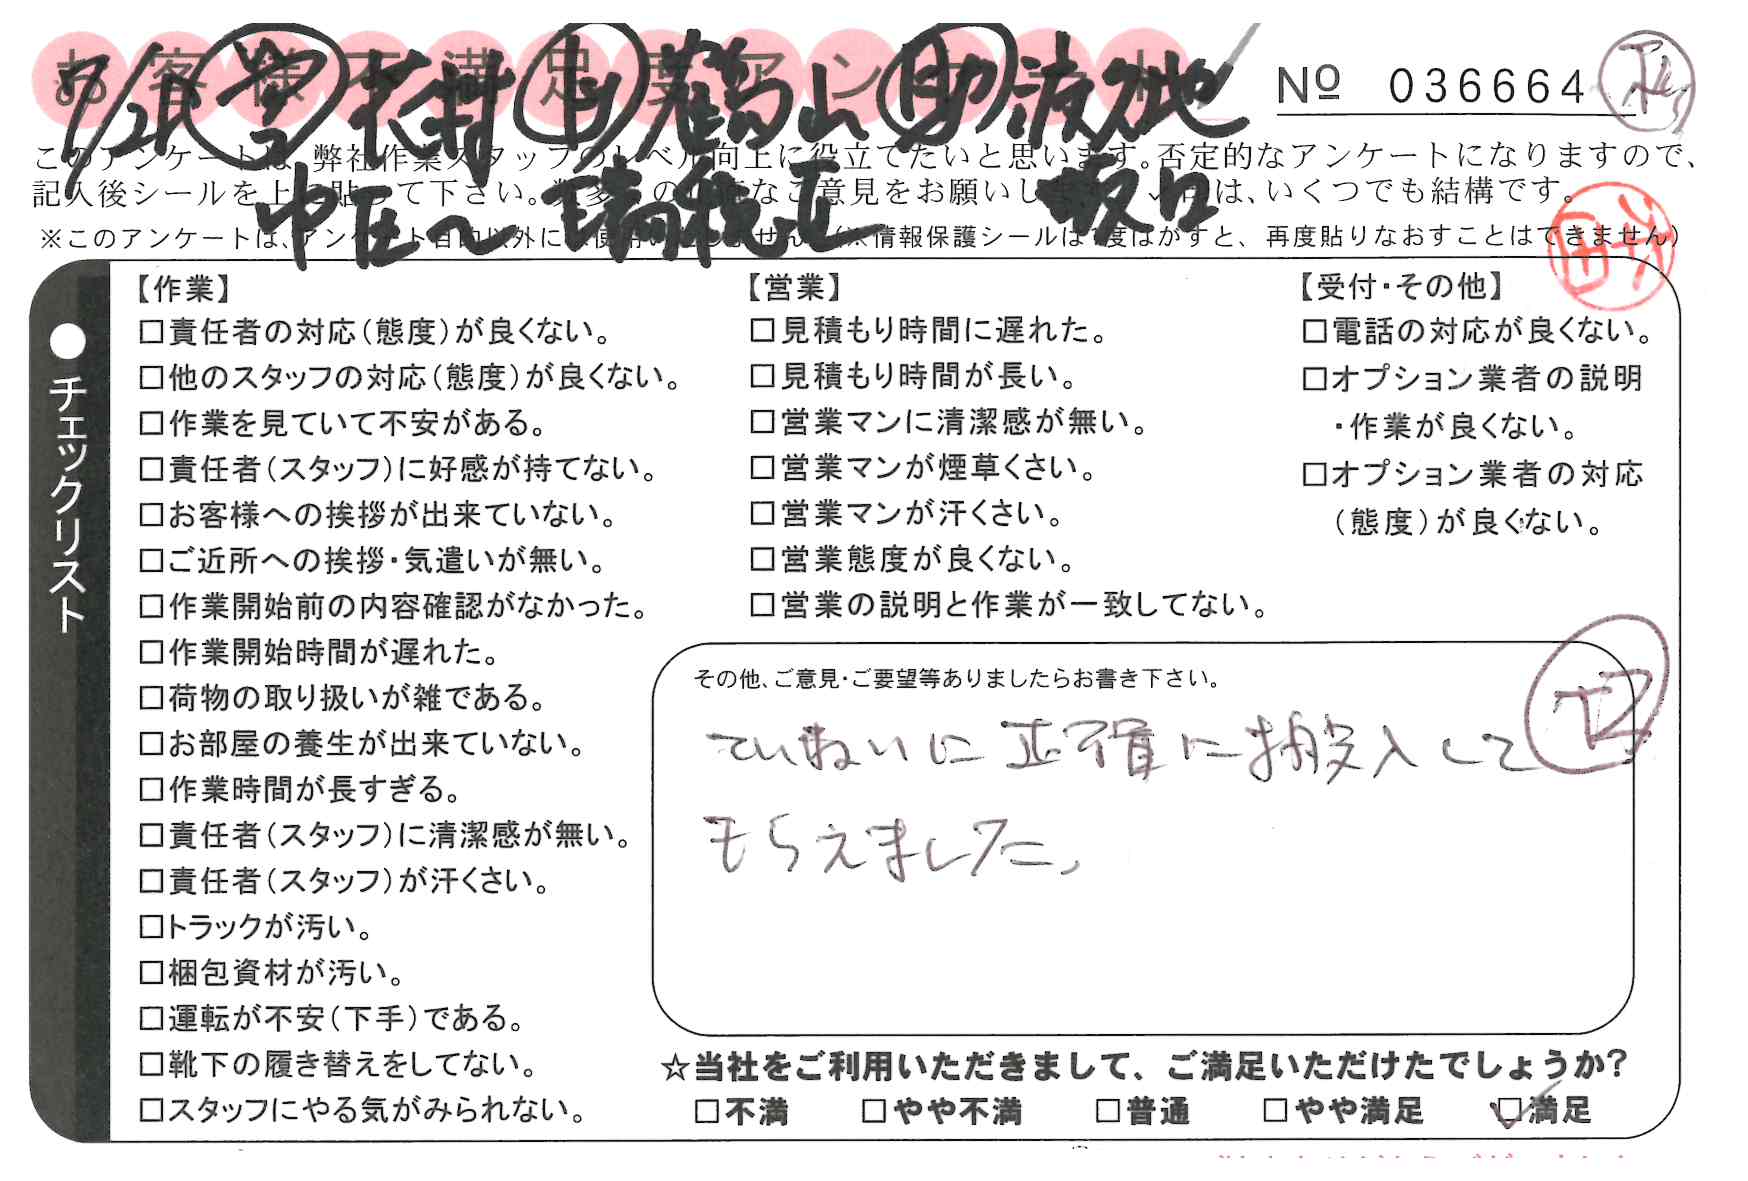 お客様不満足度アンケート
7/21 営 木村 鶴山 助 渡地
中区〜瑞穂区 坂口
№ 036664
このアンケートは、弊社作業スタッフのレベル向上に役立てたいと思います。否定的なアンケートになりますので、
記入後シールを上に貼って下さい。数多くの正直なご意見をお願いします。✓印は、いくつでも結構です。
※このアンケートは、アンケート目的以外には使用いたしません。(※情報保護シールは1度はがすと、再度貼りなおすことはできません)
●チェックリスト
【作業】
□責任者の対応(態度)が良くない。
□他のスタッフの対応(態度)が良くない。
□作業を見ていて不安がある。
□責任者(スタッフ)に好感が持てない。
□お客様への挨拶が出来ていない。
□ご近所への挨拶・気遣いが無い。
□作業開始前の内容確認がなかった。
□作業開始時間が遅れた。
□荷物の取り扱いが雑である。
□お部屋の養生が出来ていない。
□作業時間が長すぎる。
□責任者(スタッフ)に清潔感が無い。
□責任者(スタッフ)が汗くさい。
□トラックが汚い。
□梱包資材が汚い。
□運転が不安(下手)である。
□靴下の履き替えをしてない。
□スタッフにやる気がみられない。
【営業】
□見積もり時間に遅れた。
□見積もり時間が長い。
□営業マンに清潔感が無い。
□営業マンが煙草くさい。
□営業マンが汗くさい。
□営業態度が良くない。
□営業の説明と作業が一致してない。
【受付・その他】
□電話の対応が良くない。
□オプション業者の説明
・作業が良くない。
□オプション業者の対応
(態度)が良くない。
その他、ご意見・ご要望等ありましたらお書き下さい。
ていねいに正確に搬入して
もらえました。
☆当社をご利用いただきまして、ご満足いただけたでしょうか?
□不満 □やや不満 □普通 □やや満足 ☑満足